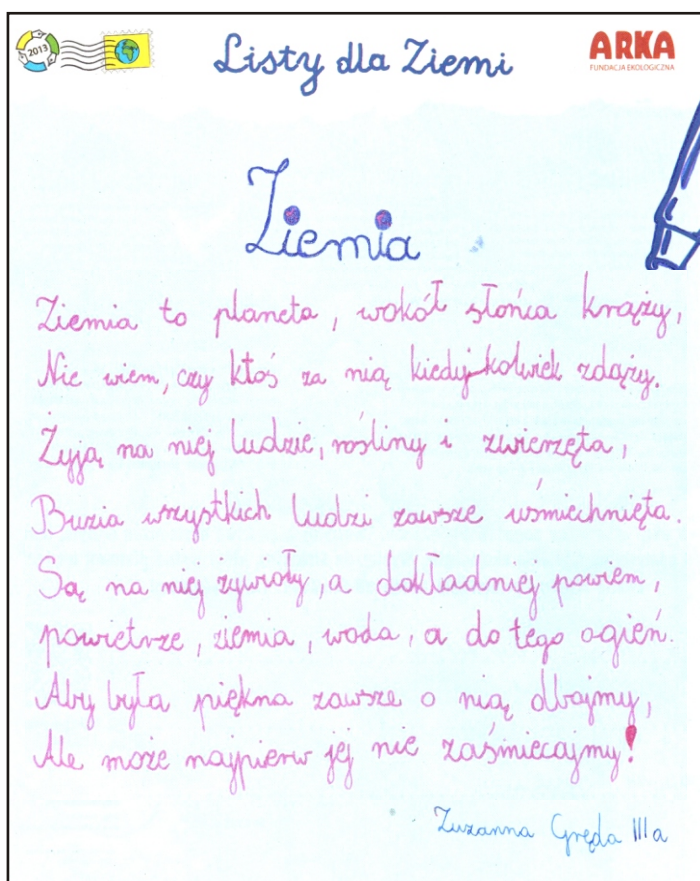 2013
Listy dla Ziemi
ARKA
FUNDACJA EKOLOGICZNA
Ziemia
Ziemia to planeta, wokół słońca krąży,
Nie wiem, czy ktoś za nią kiedykolwiek zdąży.
Żyją na niej ludzie, rośliny i zwierzęta,
Buzia wszystkich ludzi zawsze uśmiechnięta.
Są na niej żywioły, a dokładniej powiem,
powietrze, ziemia, woda, a do tego ogień.
Aby była piękna zawsze o nią dbajmy,
Ale może najpierw jej nie zaśmiecajmy!
Zuzanna Gręda IIIa